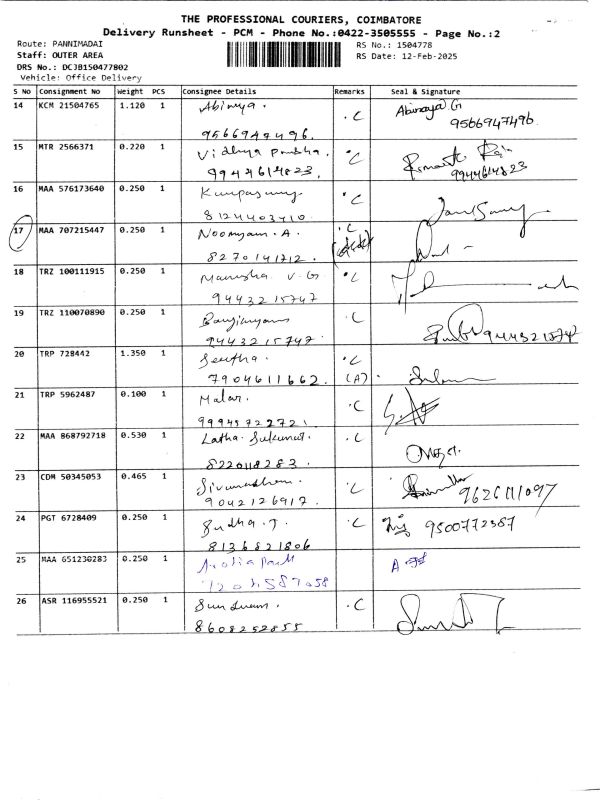 THE PROFESSIONAL COURIERS, COIMBATORE
Delivery Runsheet - PCM - Phone No.:0422-3505555 - Page No.:2
Route: PANNIMADAI
RS No.: 1504778
Staff: OUTER AREA
RS Date: 12-Feb-2025
DRS No.: DCJB150477802
Vehicle: Office Delivery
S No Consignment No Weight PCS Consignee Details Remarks Seal & Signature
14 KCM 21504765 1.120 1 Abinya. .C Abinaya G
9566947496. 9566947496.
15 MTR 2566371 0.220 1 Vidhya Prabha. °C
9944614823. 9944614823
16 MAA 576173640 0.250 1 °C
8124403410
17 MAA 707215447 0.250 1 A. .C
8270141712.
18 TRZ 100111915 0.250 1 Manisha V.G °C
9443215747
19 TRZ 110070890 0.250 1 .C
9443215747. 9443215747
20 TRP 728442 1.350 1 Seetha. .C
7904611662. (A).
21 TRP 5962487 0.100 1 Malar. .C
99945722721.
22 MAA 868792718 0.530 1 Latha Sukumar. .C
8220118283.
23 CDM 50345053 0.465 1 .C
9042126917. 9626111097
24 PGT 6728409 0.250 1 Sudha.J. .C 9500772387
8136821806
25 MAA 651230283 0.250 1 A
26 ASR 116955521 0.250 1 .C
8608252855